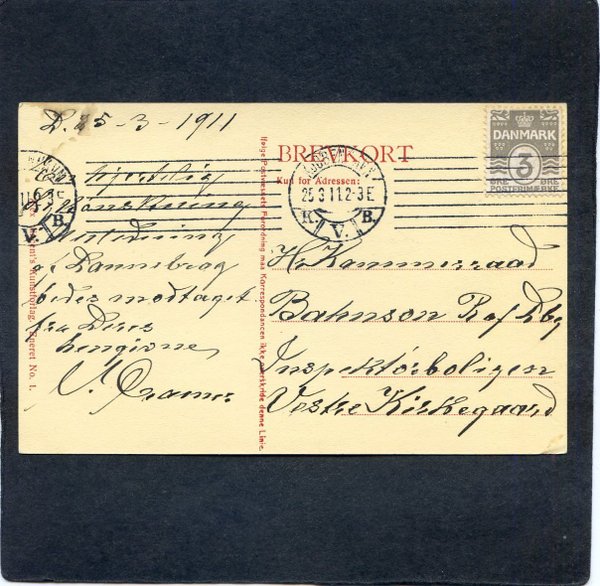 D. 25-3-1911
hjertelig
Lykønskning
Anledning
af Dannebrog
bedes modtaget
fra Deres
hengivne
V.
BREVKORT
Kun for Adressen:
25.3.11.2-3E
K. V. B.
V. B.
DANMARK
3
POSTFRIMÆRKE
Hr Kammerraad
Bahnson R af Dbg
Inspektørboligen
Vestre Kirkegaard
Ifølge Postvæsnets Forordning maa Korrespondancen ikke overskride denne Linie.
Kunstforlag. Eneret No. 1.